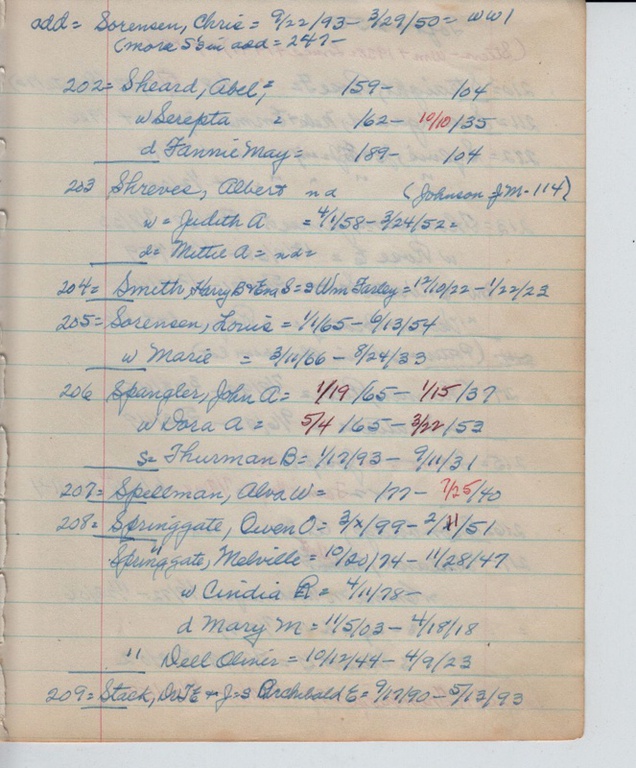 add = Sorensen, Chris = 9/22/93 - 3/29/50 = WW1
(more S's in add = 247 -
202 = Sheard, Abel, = /59 - /04
w Serepta = /62 - 10/10/35
d Fannie May = /89 - /04
203 Shreves, Albert nd (Johnson J M - 114)
w = Judith A = 4/1/58 - 3/24/52 =
d = Mettie A = nd =
204 = Smith, Harry B & Ena S = s Wm Farley = 12/10/22 - 1/22/23
205 = Sorensen, Louis = 1/1/65 - 6/13/54
w Marie = 3/11/66 - 8/24/33
206 Spangler, John A = 1/19/65 - 1/15/37
w Dora A = 5/4/65 - 3/22/53
s = Thurman B = 1/17/93 - 9/11/31
207 = Spellman, Alva W = /77 - 7/25/40
208 = Springgate, Owen O = 3/x/99 - 2/11/51
Springgate, Melville = 10/20/74 - 11/28/47
w Cindia R = 4/11/78 -
d Mary M = 11/5/03 - 4/18/18
" Dell Oliner = 10/12/44 - 4/9/23
209 = Stack, Dr T E & J = s Archibald E = 9/17/90 - 5/13/93